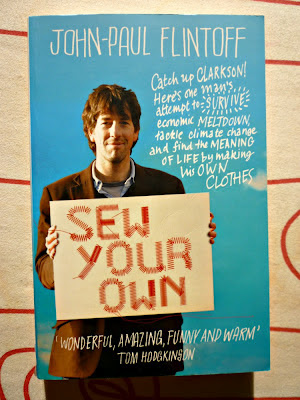 JOHN-PAUL FLINTOFF
Catch up CLARKSON!
Here's one man's
attempt to SURVIVE
economic MELTDOWN,
tackle climate change
and find the MEANING
OF LIFE by making
his OWN
CLOTHES
SEW
YOUR
OWN
'WONDERFUL, AMAZING, FUNNY AND WARM'
TOM HODGKINSON